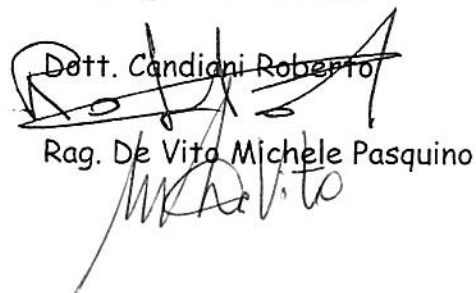 Dott. Candiani Roberto
Rag. De Vito Michele Pasquino